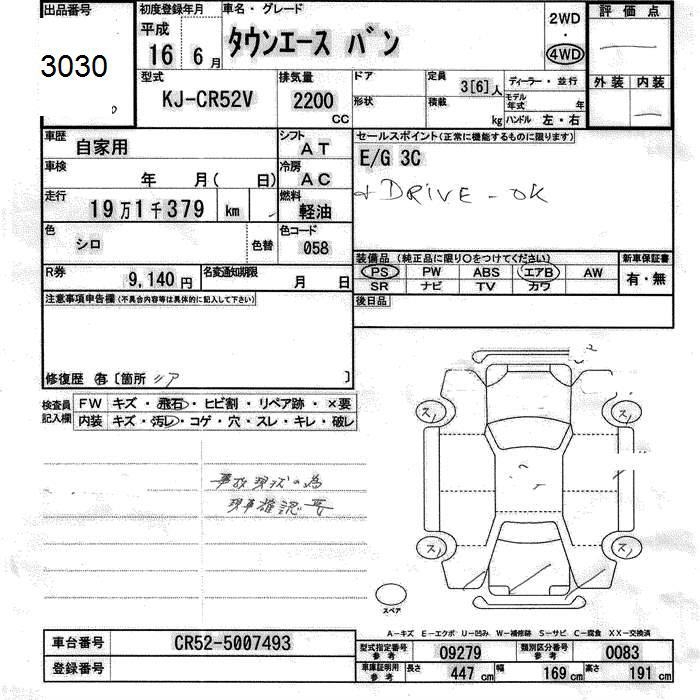 出品番号
3030
初度登録年月
平成
16 6 月
車名・グレード
タウンエース バン
2WD
・
4WD
評価点
外装 内装
型式
KJ-CR52V
排気量
2200
CC
ドア
形状
定員
3[6]人
積載
kg
ディーラー・並行
モデル年式 年
ハンドル 左・右
車歴
自家用
シフト
AT
車検
年 月( 日)
冷房
AC
走行
19万1千379 km
燃料
軽油
色
シロ
色替
色コード
058
R券
9,140 円
名変通知期限
月 日
セールスポイント(正常に機能するものに限ります)
E/G 3C
DRIVE - OK
装備品(純正品に限り○をつけてください)
PS PW ABS エアB AW
SR ナビ TV カワ
新車保証書
有・無
後日品
注意事項申告欄(不具合内容等は具体的に記入して下さい)
修復歴 有〔箇所 リア 〕
検査員
記入欄
FW キズ・飛石・ヒビ割・リペア跡・×要
内装 キズ・汚レ・コゲ・穴・スレ・キレ・破レ
事故現状の為
現車確認要
スノ
スノ
スノ
スノ
スペア
A-キズ E-エクボ U-凹み W-補修跡 S-サビ C-腐食 XX-交換済
車台番号
CR52-5007493
登録番号
型式指定番号
参考
09279
類別区分番号
参考
0083
車庫証明用
参考
長さ 447 cm 幅 169 cm 高さ 191 cm